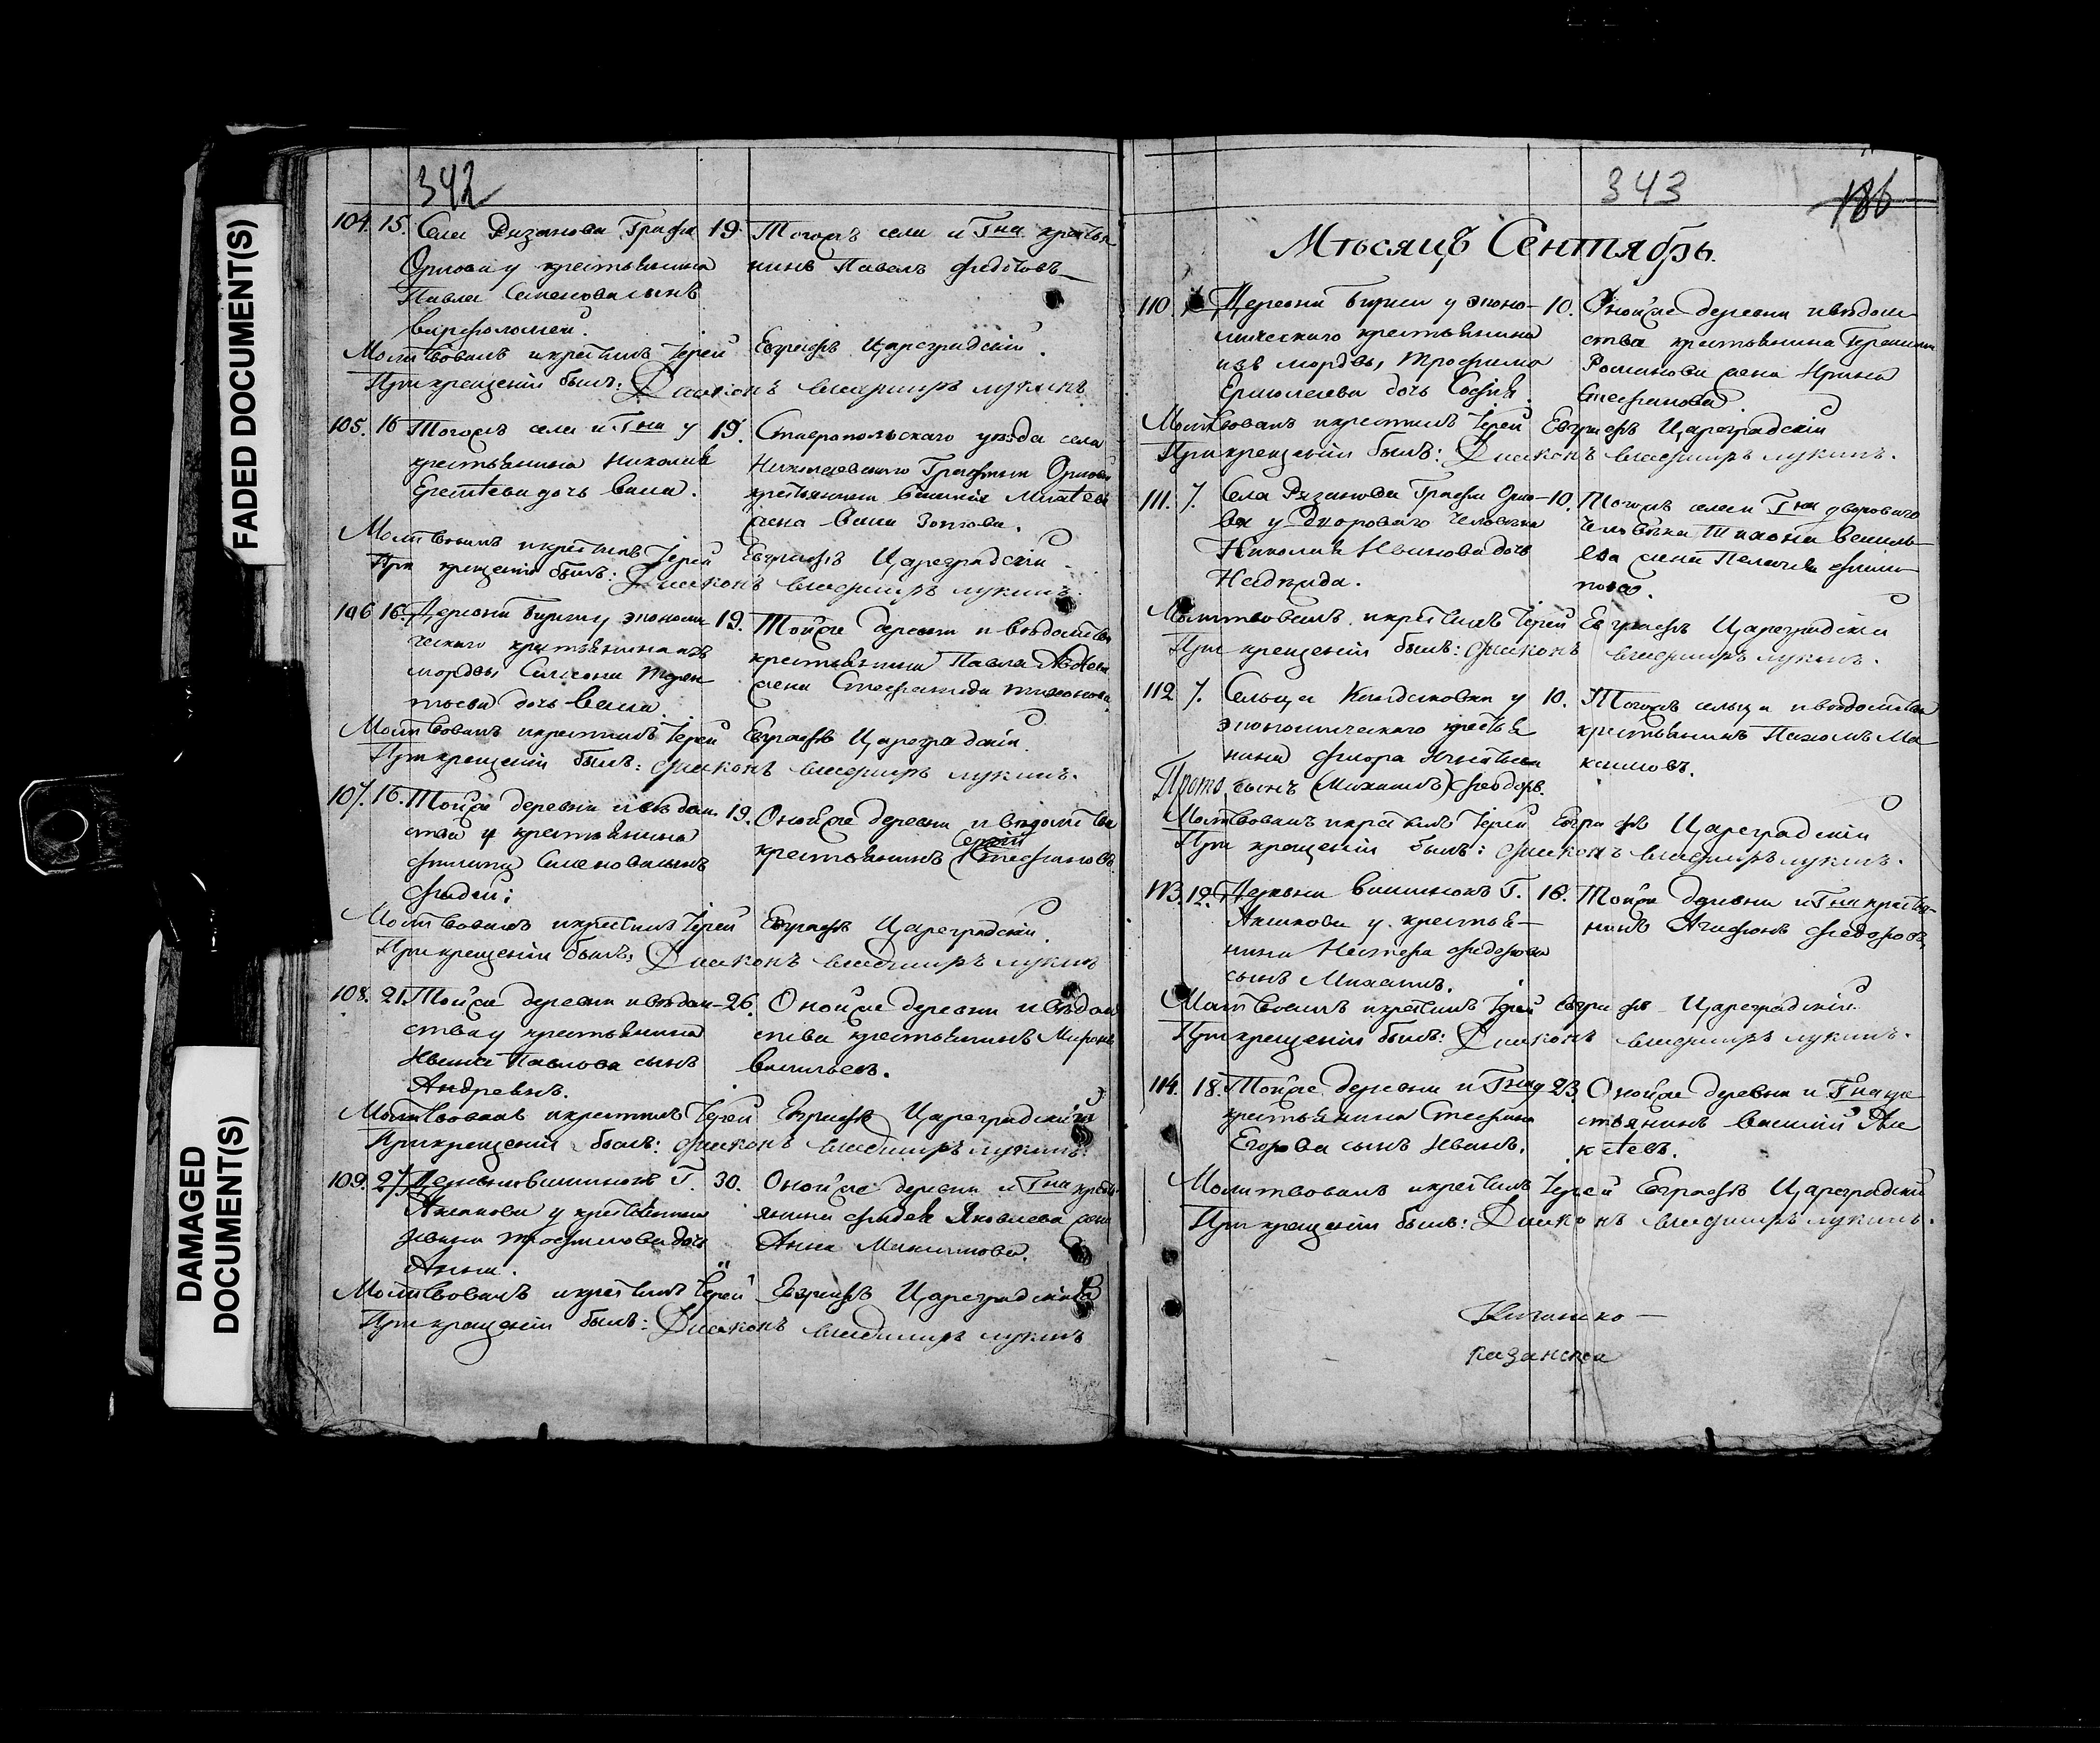 FADED DOCUMENT(S)
DAMAGED
DOCUMENT(S)
342
104. 15. Села Рязанова Графа
Орлова у крестьянина
Павла Семенова сынъ
варфоломей.
19. Тогожъ села и Гна крестья
нинъ Павелъ Федотовъ
Молитвовалъ и крестилъ Іерей Евграфъ Цареградскій.
При крещеніи былъ: Диаконъ владимиръ лукинъ.
105. 16 Тогожъ села и Гна у
крестьянина Николая
дочь васа.
19. Ставропольскаго уѣзда села
Николаевскаго Графини Орловой
крестьянина василия
жена
Молитвовалъ и крестилъ Іерей Евграфъ Цареградскій
При крещеніи былъ: Диаконъ владимиръ лукинъ.
106 16. Деревни экономи
ческаго крестьянина изъ
мордвы Самсона Терен
тьева дочь васса
19. Тойже деревни и вѣдомства
крестьянина Павла
жена Стефанида Тихонова
Молитвовалъ и крестилъ Іерей Евграфъ Цареградскій.
При крещеніи былъ: Диаконъ владимиръ лукинъ.
107. 16. Тойже деревни и вѣдом
ства у крестьянина
Филипа Семенова сынъ
Фадей:
19. Онойже деревни и вѣдомства
Сергей
крестьянинъ Стефановъ
Молитвовалъ и крестилъ Іерей Евграфъ Цареградскій.
При крещеніи былъ: Диаконъ владимиръ лукинъ
108. 21. Тойже деревни и вѣдом-
ства у крестьянина
Ивана Павлова сынъ
Андреянъ.
26. Онойже деревни и вѣдом
ства крестьянинъ Миронъ
васильевъ.
Молитвовалъ и крестилъ Іерей Евграфъ Цареградскій
При крещеніи былъ: Диаконъ владимиръ лукинъ.
109. 27. Деревни Г.
у крестьянина
Ивана Трофимова дочь
Анна.
30. Онойже деревни и Гна кресть
янина Фадея Яковлева жена
Анна
Молитвовалъ и крестилъ Іерей Евграфъ Цареградскій
При крещеніи былъ: Диаконъ владимиръ лукинъ
343
186
Мѣсяцъ Сентябрь.
110. Деревни у эконо-
мическаго крестьянина
изъ мордвы, Трофима
Ермолаева дочь София.
10. Онойже деревни и вѣдом
ства крестьянина Герасима
Романова жена Ирина
Стефанова.
Молитвовалъ и крестилъ Іерей Евграфъ Цареградскій
При крещеніи былъ: Диаконъ владимиръ лукинъ.
111. 7. Села Рязанова Графа Орло-
ва у Двороваго человѣка
Николая Иванова дочь
Надежда.
10. Тогожъ села и Гна двороваго
человѣка Тихона василь-
ева жена Пелагея Филип
пова.
Молитвовалъ и крестилъ Іерей Евграфъ Цареградскій
При крещеніи былъ: Диаконъ владимиръ лукинъ.
112 7. Сельца Кандаковки у
экономическаго крестья
нина Флора Игнатьева
сынъ (Михаилъ) Феодоръ.
10. Тогожъ сельца и вѣдомства
крестьянинъ Пахомъ Ма
ксимовъ.
Молитвовалъ и крестилъ Іерей Евграфъ Цареградскій
При крещеніи былъ: Диаконъ владимиръ лукинъ.
113. 12. Деревни Г.
у крестья-
нина Нестера Федорова
сынъ Михаилъ.
16. Тойже деревни и Гна крестья-
нинъ Агафонъ Федоровъ.
Молитвовалъ и крестилъ Іерей Евграфъ Цареградскій.
При крещеніи былъ: Диаконъ владимиръ лукинъ.
114. 18. Тойже деревни и Гна у
крестьянина Стефана
Егорова сынъ Иванъ.
23. Онойже деревни и Гна кре
стьянинъ василий Але
ксѣевъ.
Молитвовалъ и крестилъ Іерей Евграфъ Цареградскій
При крещеніи былъ: Диаконъ владимиръ лукинъ.